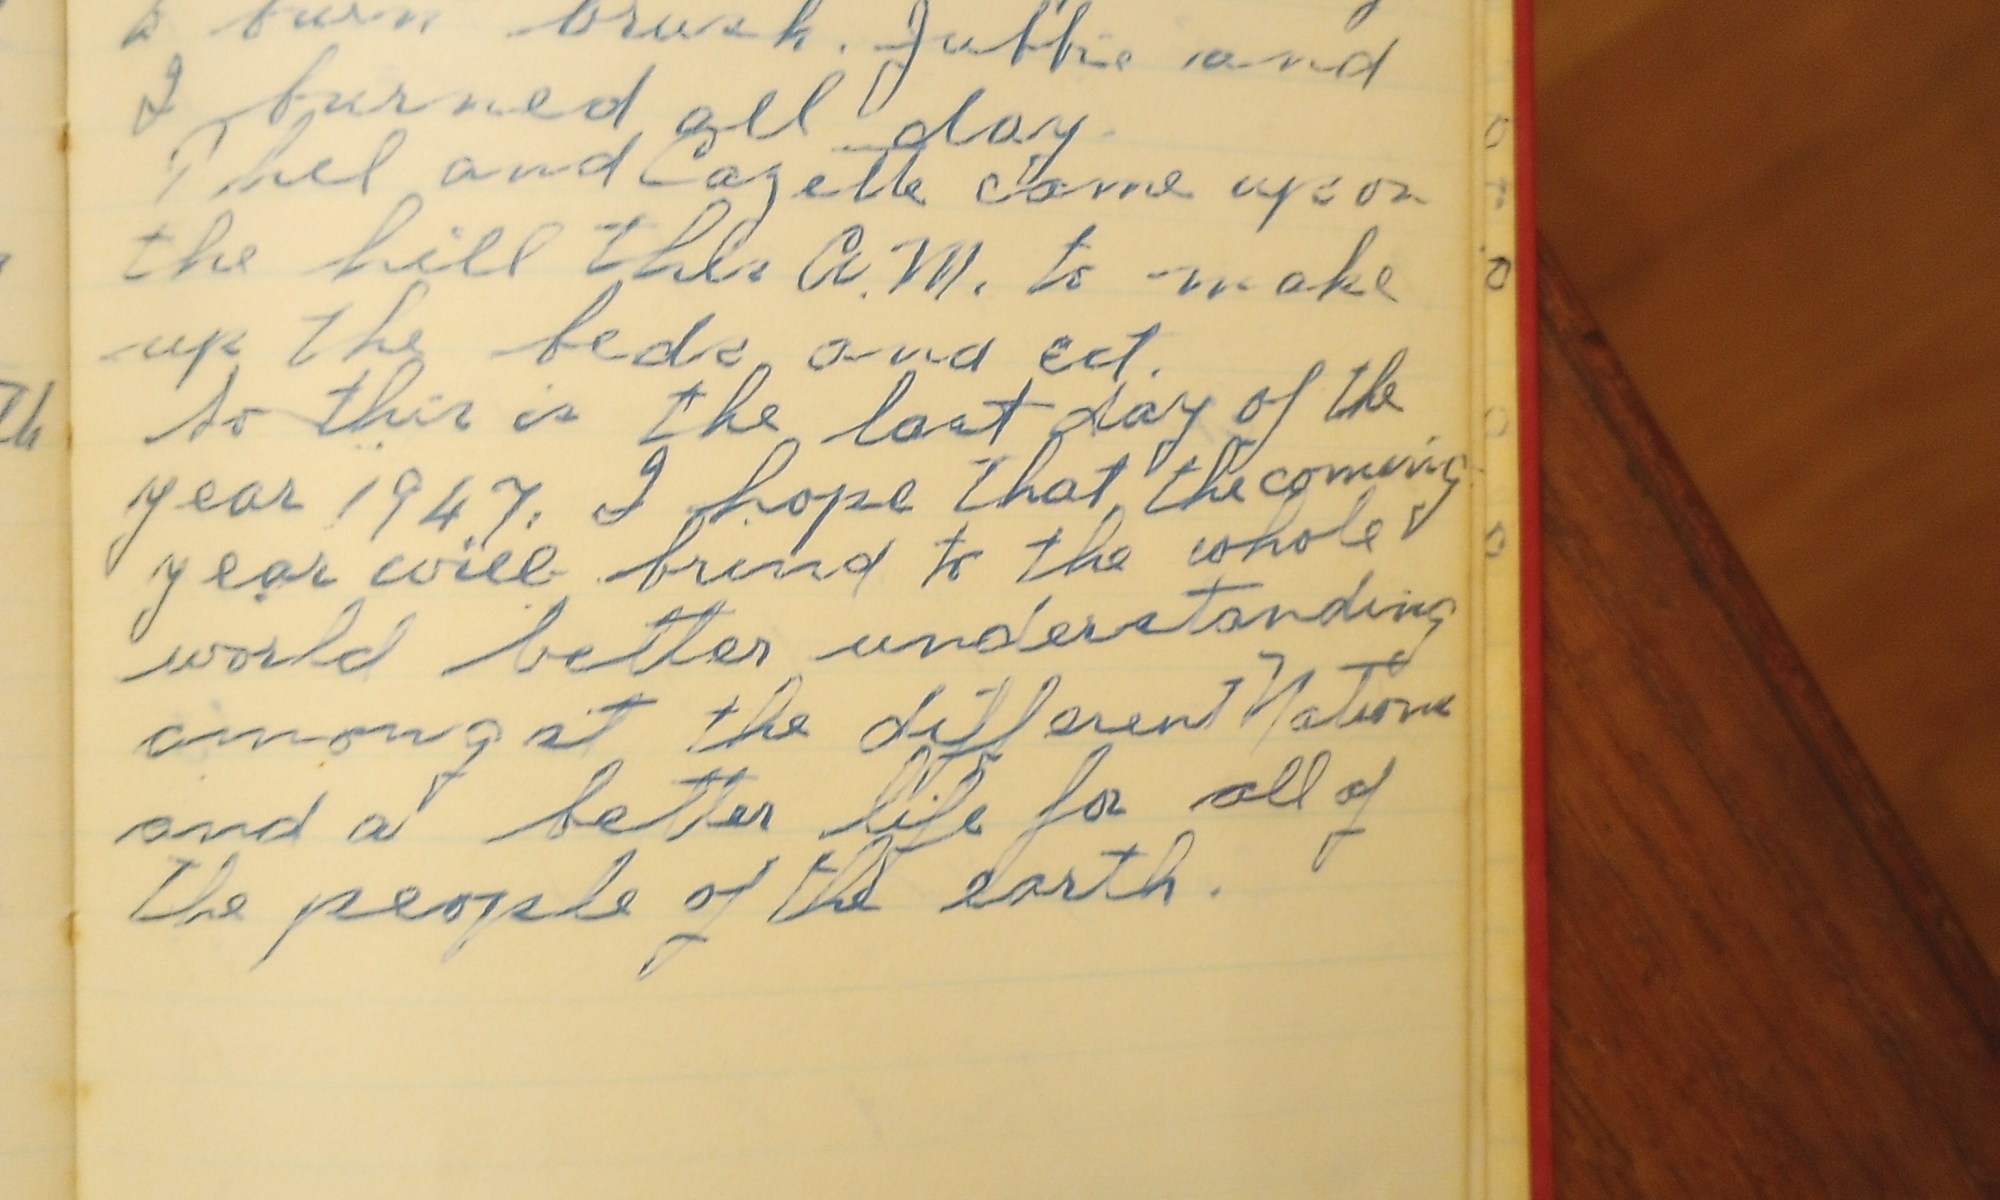 to burn brush. Jubbie and
I burned all day.
Thel and Cazette come up on
the hill this A.M. to make
up the beds and ect.
So this is the last day of the
year 1947. I hope that the coming
year will brind to the whole
world better understanding
amongst the different Nations
and a better life for all of
the people of the earth.